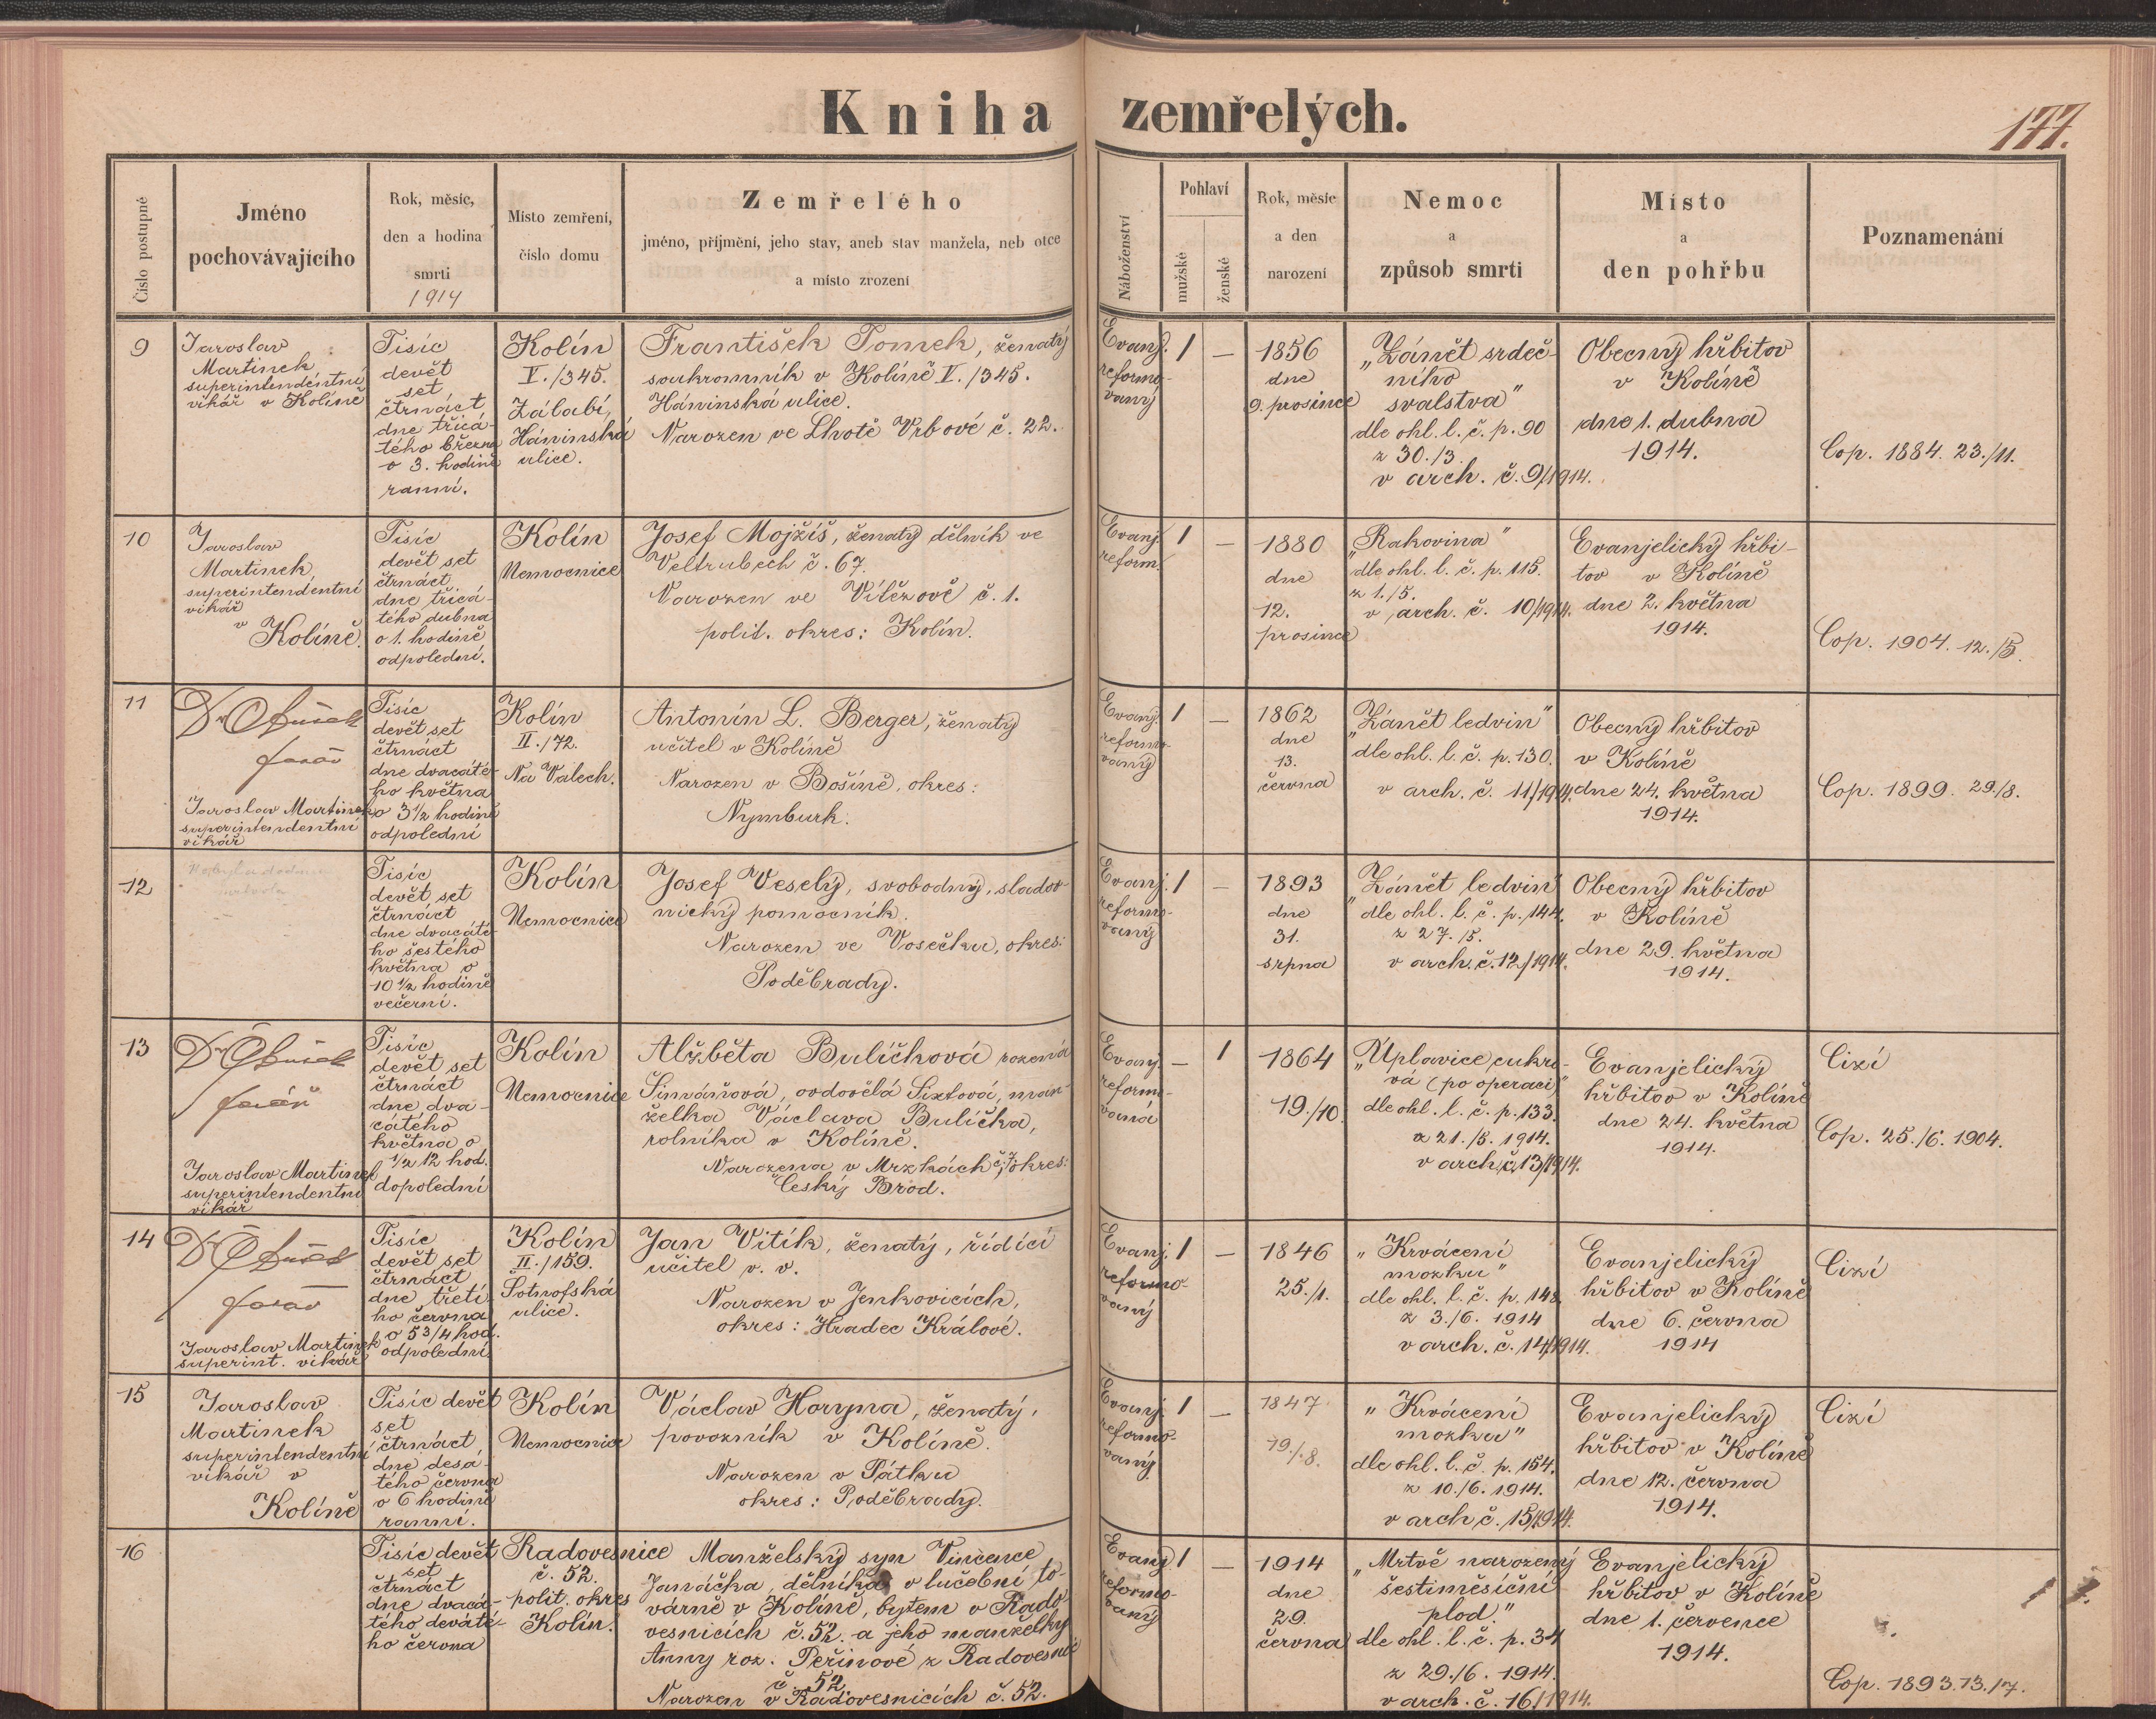 Kniha zemřelých.
177.
Číslo postupné
Jméno
pochovávajícího
Rok, měsíc,
den a hodina
smrti
1914
Místo zemření,
číslo domu
Zemřelého
jméno, příjmění, jeho stav, aneb stav manžela, neb otce
a místo zrození
Náboženství
Pohlaví
mužské
ženské
Rok, měsíc
a den
narození
Nemoc
a
způsob smrti
Místo
a
den pohřbu
Poznamenání
9
Jaroslav
Martinek
superintendentní
vikář v Kolíně
Tisíc
devět
set
čtrnáct
dne třicá-
tého března
o 3. hodině
ranní.
Kolín
V./345.
Zálabí,
Háninská
ulice.
František Tomek, ženatý
soukromník v Kolíně V./345.
Háninská ulice.
Narozen ve Lhotě Vrbové č. 22.
Evanj.
reformo-
vaný
1
—
1856
dne
9. prosince
„Zánět srdeč-
ního
svalstva"
dle ohl. l. č. p. 90
z 30./3.
v arch. č. 9/1914.
Obecný hřbitov
v Kolíně
dne 1. dubna
1914.
Cop. 1884. 23./11.
10
Jaroslav
Martinek
superintendentní
vikář
v
Kolíně.
Tisíc
devět set
čtrnáct
dne třicá-
tého dubna
o 1. hodině
odpolední.
Kolín
Nemocnice
Josef Mojžíš, ženatý dělník ve
Veltrubech č. 67.
Narozen ve Vítězově č. 1.
polit. okres: Kolín.
Evanj.
reform.
1
—
1880
dne
12.
prosince
„Rakovina"
dle ohl. l. č. p. 115.
z 1./5.
v arch. č. 10/1914.
Evanjelický hřbi-
tov v Kolíně
dne 2. května
1914.
Cop. 1904. 12./5.
11
farář
Jaroslav Martinek
superintendentní
vikář
Tisíc
devět set
čtrnáct
dne dvacáté-
ho května
o 3 1/2 hodině
odpolední
Kolín
II./72.
Na Valech.
Antonín L. Berger, ženatý
učitel v Kolíně
Narozen v Bošíně, okres:
Nymburk.
Evanj.
reformo-
vaný
1
—
1862
dne
13.
června
„Zánět ledvin"
dle ohl. l. č. p. 130.
v arch. č. 11/1914.
Obecný hřbitov
v Kolíně
dne 24. května
1914.
Cop. 1899. 29./8.
12
Tisíc
devět set
čtrnáct
dne dvacáté-
ho šestého
května o
10 1/2 hodině
večerní.
Kolín
Nemocnice
Josef Veselý, svobodný, sladov-
nický pomocník.
Narozen ve Vosečku, okres:
Poděbrady.
Evanj.
reformo-
vaný
1
—
1893
dne
31.
srpna
„Zánět ledvin"
dle ohl. l. č. p. 144.
z 27./5.
v arch. č. 12/1914.
Obecný hřbitov
v Kolíně
dne 29. května
1914.
13
farář
Jaroslav Martinek
superintendentní
vikář
Tisíc
devět set
čtrnáct
dne dva-
cátého
května o
1/2 12 hod.
dopolední
Kolín
Nemocnice
Alžběta Bulíčková rozená
Šimáňová, ovdovělá Sixtová, man-
želka Václava Bulíčka,
rolníka v Kolíně.
Narozena v Mrzkách č. 7, okres:
Český Brod.
Evanj.
reformo-
vaná
—
1
1864
19./10.
„Úplavice cukro-
vá (po operaci)"
dle ohl. l. č. p. 133.
z 21./5. 1914.
v arch. č. 13/1914.
Evanjelický
hřbitov v Kolíně
dne 24. května
1914.
Cizí
Cop. 25./6. 1904.
14
farář
Jaroslav Martinek
superint. vikář
Tisíc
devět set
čtrnáct
dne třetí-
ho června
o 5 3/4 hod.
odpolední
Kolín
II./159.
Šotnofská
ulice.
Jan Vitík, ženatý, řídící
učitel v. v.
Narozen v Jenkovicích,
okres: Hradec Králové.
Evanj.
reformo-
vaný
1
—
1846
25./1.
„Krvácení
mozku"
dle ohl. l. č. p. 148.
z 3./6. 1914
v arch. č. 14/1914.
Evanjelický
hřbitov v Kolíně
dne 6. června
1914
Cizí
15
Jaroslav
Martinek
superintendentní
vikář v
Kolíně
Tisíc devět
set
čtrnáct,
dne desá-
tého června
o 6 hodině
ranní.
Kolín
Nemocnice
Václav Horyna, ženatý,
povozník v Kolíně.
Narozen v Pátku
okres: Poděbrady.
Evanj.
reformo-
vaný
1
—
1847
19./8.
„Krvácení
mozku"
dle ohl. l. č. p. 154.
z 10./6. 1914.
v arch č. 15/1914.
Evanjelický
hřbitov v Kolíně
dne 12. června
1914.
Cizí
16
Tisíc devět
set
čtrnáct
dne dvacá-
tého deváté-
ho června
Radovesnice
č. 52.
polit. okres
Kolín.
Manželský syn Vincence
Janáčka, dělníka v lučební to-
várně v Kolíně, bytem v Rado-
vesnicích č. 52. a jeho manželky
Anny roz. Peřinové z Radovesnic
č. 52.
Narozen v Radovesnicích č. 52.
Evanj.
reformo-
vaný
1
—
1914
dne
29.
června
„Mrtvě narozený
šestiměsíční
plod."
dle ohl. l. č. p. 34
z 29./6. 1914.
v arch. č. 16/1914.
Evanjelický
hřbitov v Kolíně
dne 1. července
1914.
Cop. 1893. 13./7.